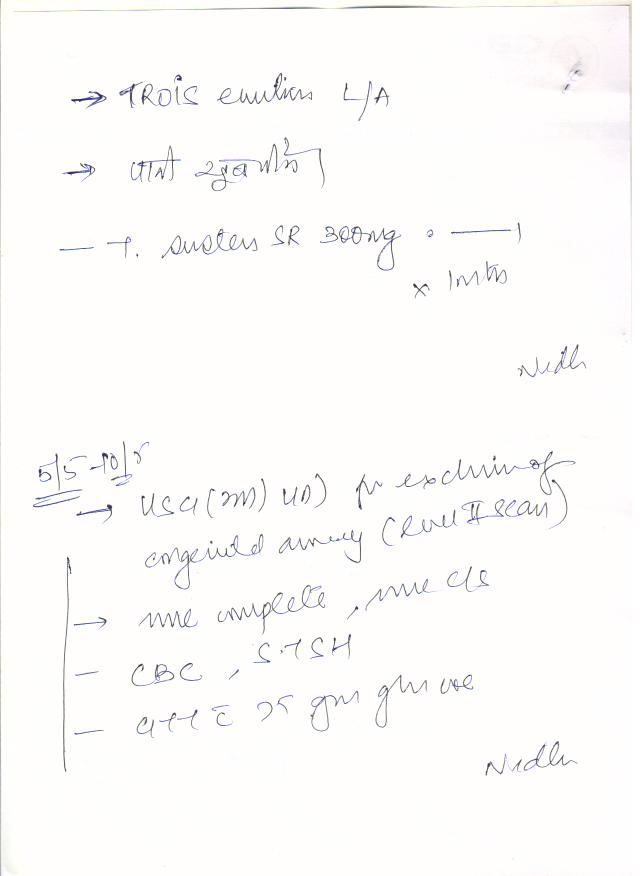 → TROIS emulsion L/A
→ पानी खूब पीना
— T. Susten SR 300mg
x 1mth
Nidhi
5/5 - 10/5
→ USG (2nd) for exclusion of
congenital anomaly (level II scan)
→ urine complete, urine c/s
— CBC, S. TSH
— GTT c̄ 75 gm glucose
Nidhi